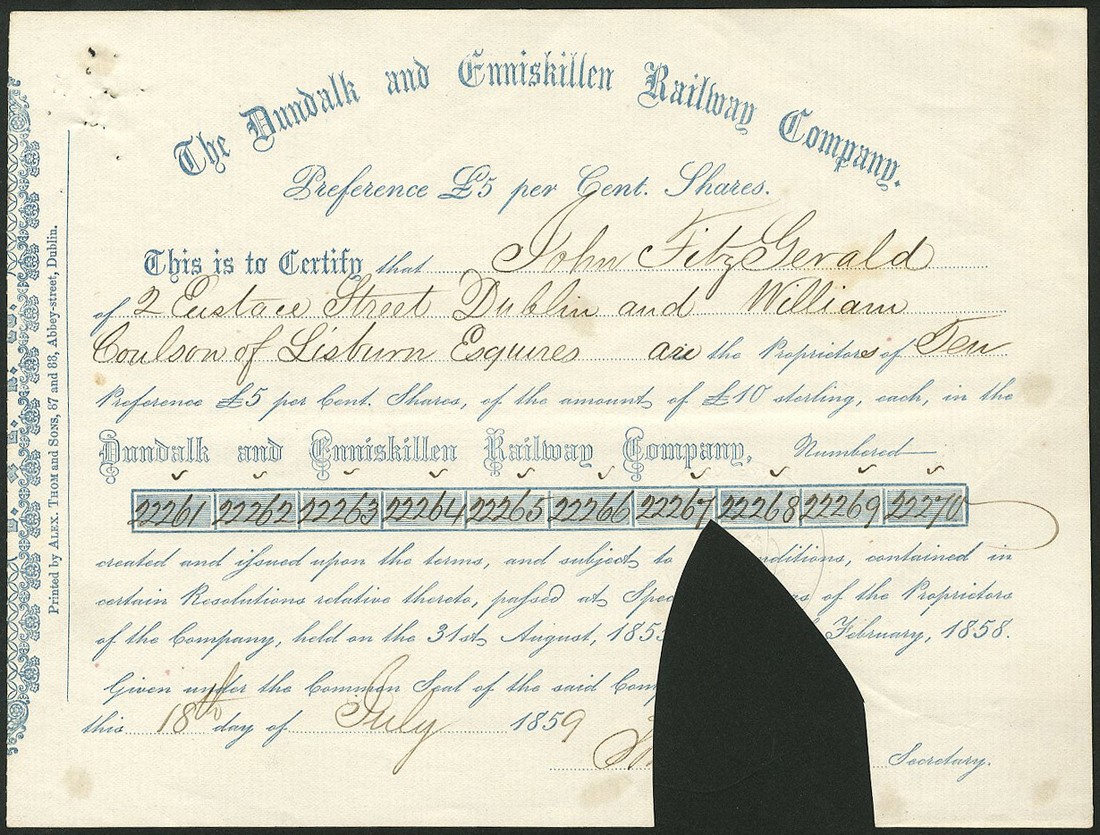 The Dundalk and Enniskillen Railway Company.
Preference £5 per Cent. Shares.
This is to Certify that John FitzGerald
of 2 Eustace Street Dublin and William
Coulson of Lisburn Esquires are the Proprietors of Ten
Preference £5 per Cent. Shares, of the amount of £10 sterling, each, in the
Dundalk and Enniskillen Railway Company, Numbered
22261 22262 22263 22264 22265 22266 22267 22268 22269 22270
created and issued upon the terms, and subject to contained in
certain Resolutions relative thereto, passed at of the Proprietors
of the Company, held on the 31st August, February, 1858.
Given under the Common Seal of the said
this 18th day of July 1859
Secretary.
Printed by ALEX. THOM and SONS, 87 and 88, Abbey-street, Dublin.